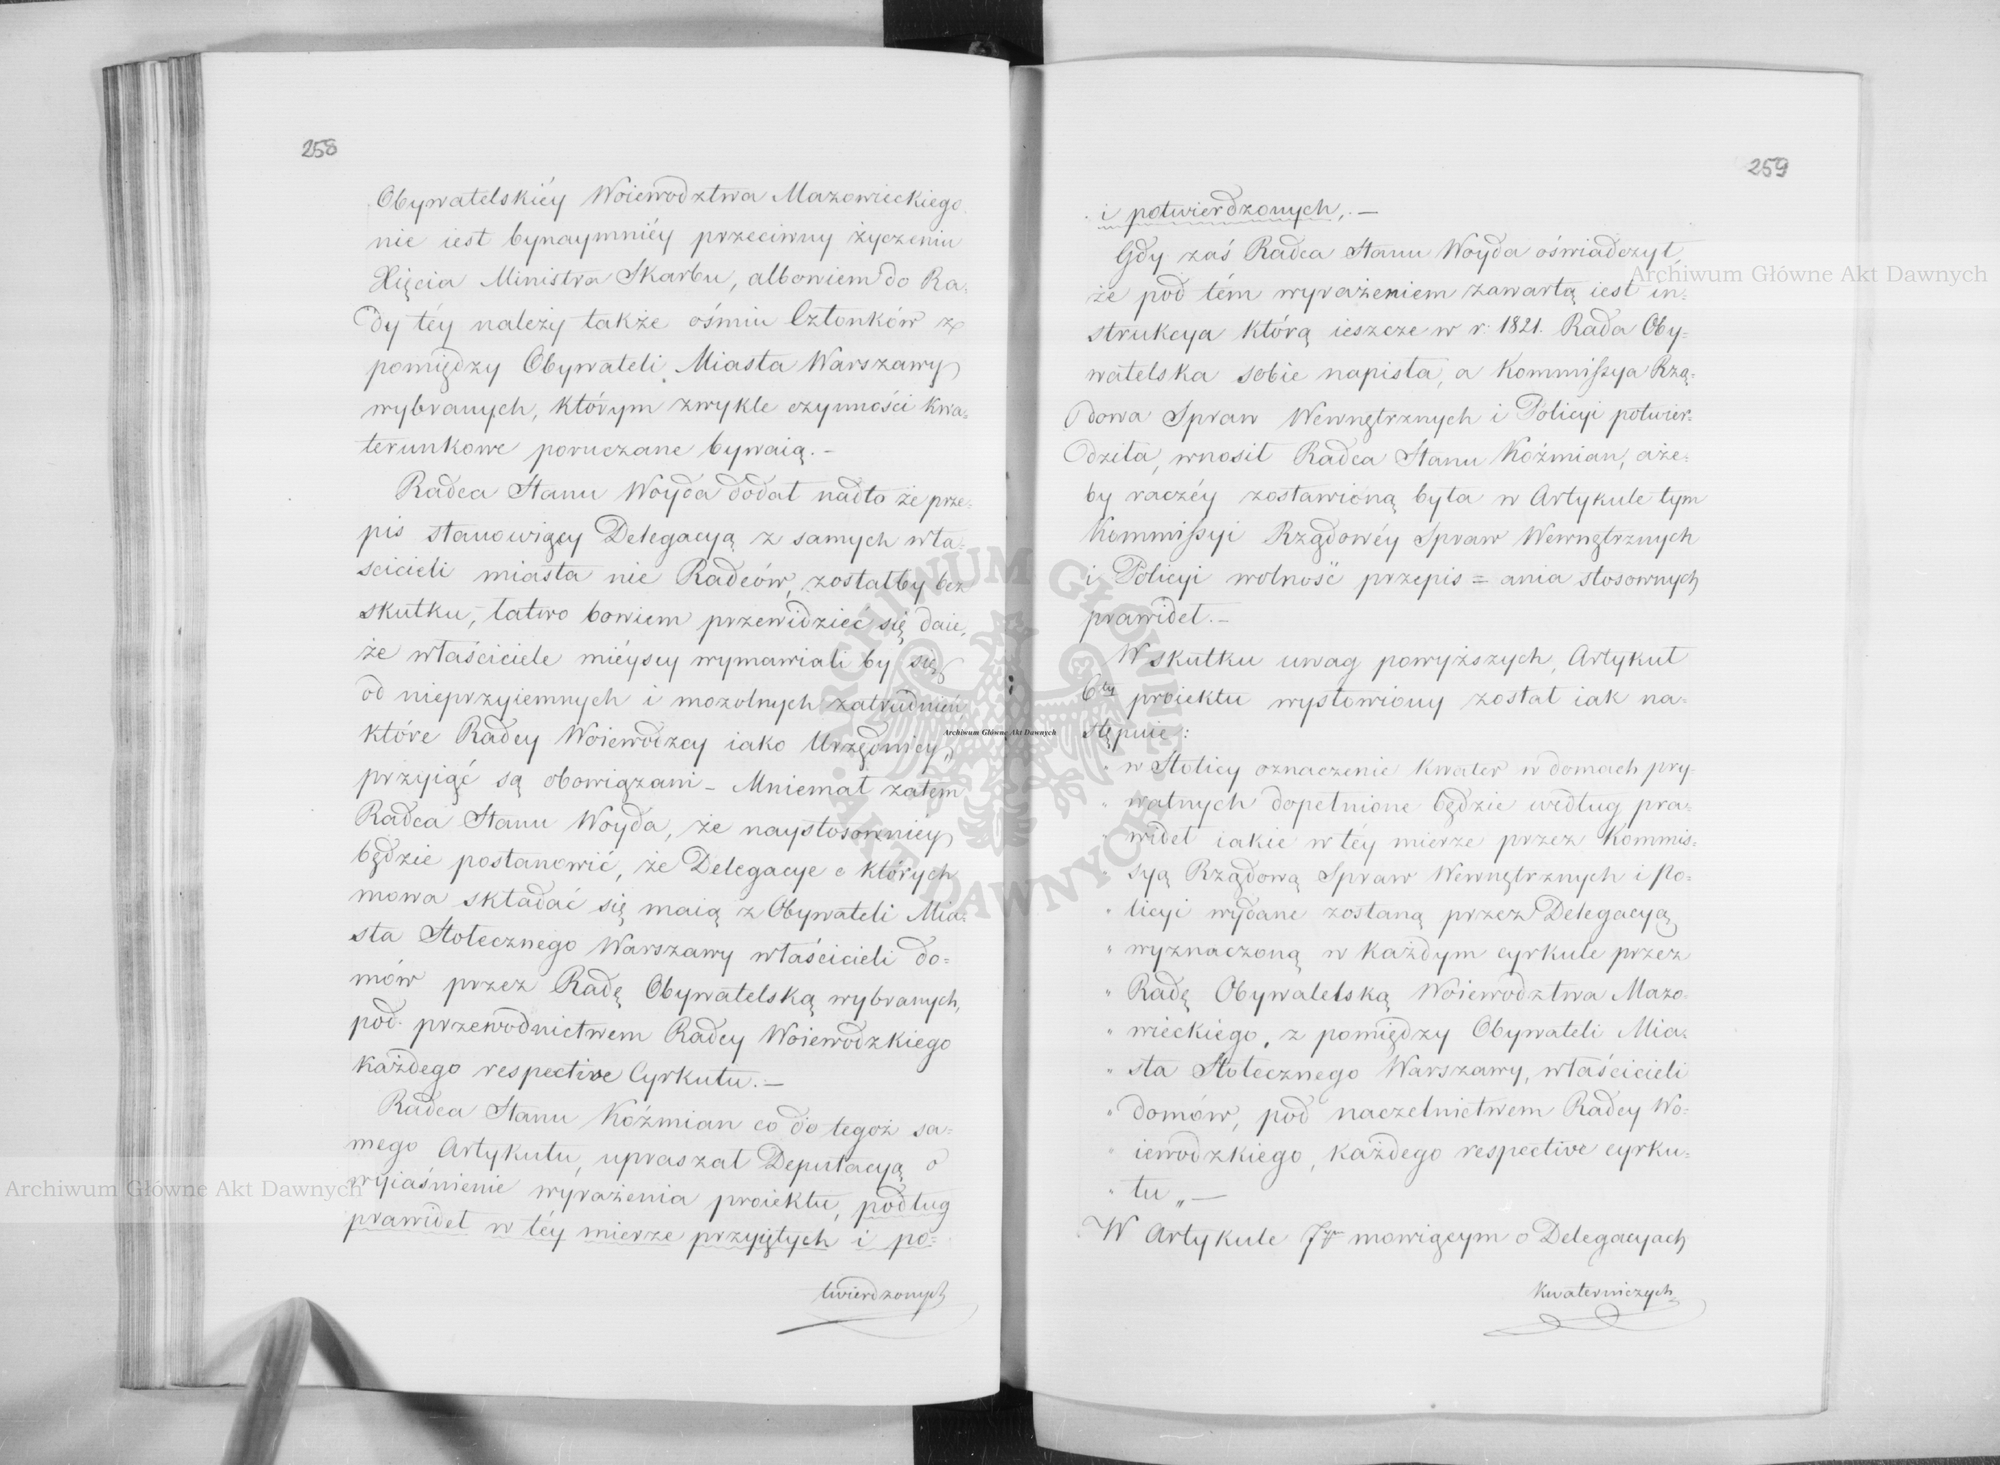 258
Obywatelskiéy Woiewodztwa Mazowieckiego
nie iest bynaymniéy przeciwny życzeniu
Xięcia Ministra Skarbu, albowiem do Ra-
dy téy należy także ośmiu Członków z
pomiędzy Obywateli Miasta Warszawy
wybranych, którym zwykle czynności kwa-
terunkowe poruczane bywaią.-
Radca Stanu Woyda dodał nadto że prze-
pis stanowiący Delegacyą z samych wła-
ścicieli miasta nie Radców, zostałby bez
skutku,- łatwo bowiem przewidzieć się daie,
że właściciele miéyscy wymawiali by się
od nieprzyiemnych i mozolnych zatrudnień,
które Radcy Woiewodzcy iako Urzędnicy,
przyiąć są obowiązani - Mniemał zatem
Radca Stanu Woyda, że naystosowniéy
będzie postanowić, że Delegacye o których
mowa składać się maią z Obywateli Mia-
sta Stołecznego Warszawy właścicieli do=
mów przez Radę Obywatelską wybranych,
pod przewodnictwem Radcy Woiewodzkiego
każdego respective Cyrkułu.-
Radca Stanu Koźmian co do tegoż sa=
mego Artykułu, upraszał Deputacyą o
wyiaśnienie wyrażenia proiektu, podług
prawideł w téy mierze przyiętych i po=
twierdzonych
259
i potwierdzonych,.-
Gdy zaś Radca Stanu Woyda oświadczył,
że pod tém wyrażeniem zawartą iest in=
strukcya którą ieszcze w r. 1821. Rada Oby=
watelska sobie napisła, a Kommissya Rzą=
dowa Spraw Wewnętrznych i Policyi potwier-
dziła, wnosił Radca Stanu Koźmian, aże=
by raczéy zostawioną była w Artykule tym
Kommissyi Rządowéy Spraw Wewnętrznych
i Policyi wolność przepis = ania stosownych
prawideł.-
W skutku uwag powyższych, Artykuł
6ty proiektu wysłowiony został iak na=
stępuie:
" w Stolicy oznaczenie kwater w domach pry-
" watnych dopełnione będzie według pra-
" wideł iakie w téy mierze przez Kommis=
" syą Rządową Spraw Wewnętrznych i Po=
" licyi wydane zostaną przez Delegacyą
" wyznaczoną w każdym cyrkule przez
" Radę Obywatelską Woiewodztwa Mazo-
" wieckiego, z pomiędzy Obywateli Mia-
" sta Stołecznego Warszawy, właścicieli
" domów, pod naczelnictwem Radcy Wo=
" iewodzkiego, każdego respective cyrku=
" łu „-
W Artykule 7ym mowiącym o Delegacyach
kwaterniczych
Archiwum Główne Akt Dawnych
Archiwum Główne Akt Dawnych
Archiwum Główne Akt Dawnych
ARCHIWUM GŁÓWNE AKT DAWNYCH